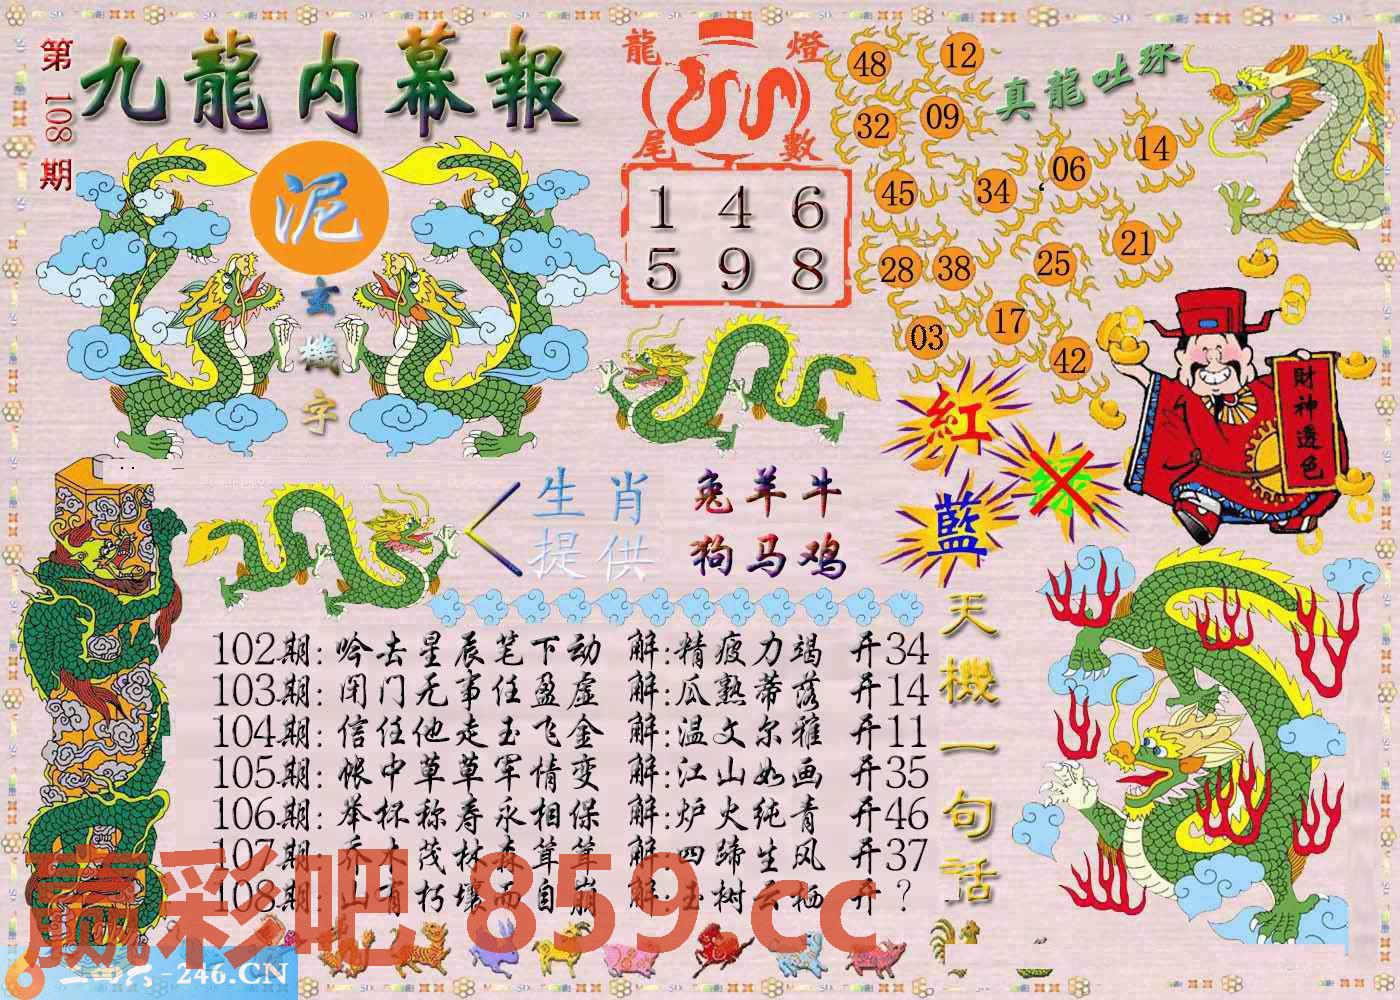 第108期
九龍內幕報
泥
玄機字
龍燈
尾數
1 4 6
5 9 8
真龍吐珠
48 12
32 09
45 34 06 14
28 38 25 21
03 17 42
財神透色
紅
绿
藍
生肖 兔羊牛
提供 狗马鸡
天機一句話
102期:吟去星辰笔下动 解:精疲力竭 开34
103期:闭门无事任盈虚 解:瓜熟蒂落 开14
104期:信任他走玉飞金 解:温文尔雅 开11
105期:帐中草草军情变 解:江山如画 开35
106期:举杯称寿永相保 解:炉火纯青 开46
107期:乔木茂林森茸茸 解:四蹄生风 开37
108期:山有朽壤而自崩 解:玉树云栖 开?
赢彩吧 859.cc
二四六-246.CN